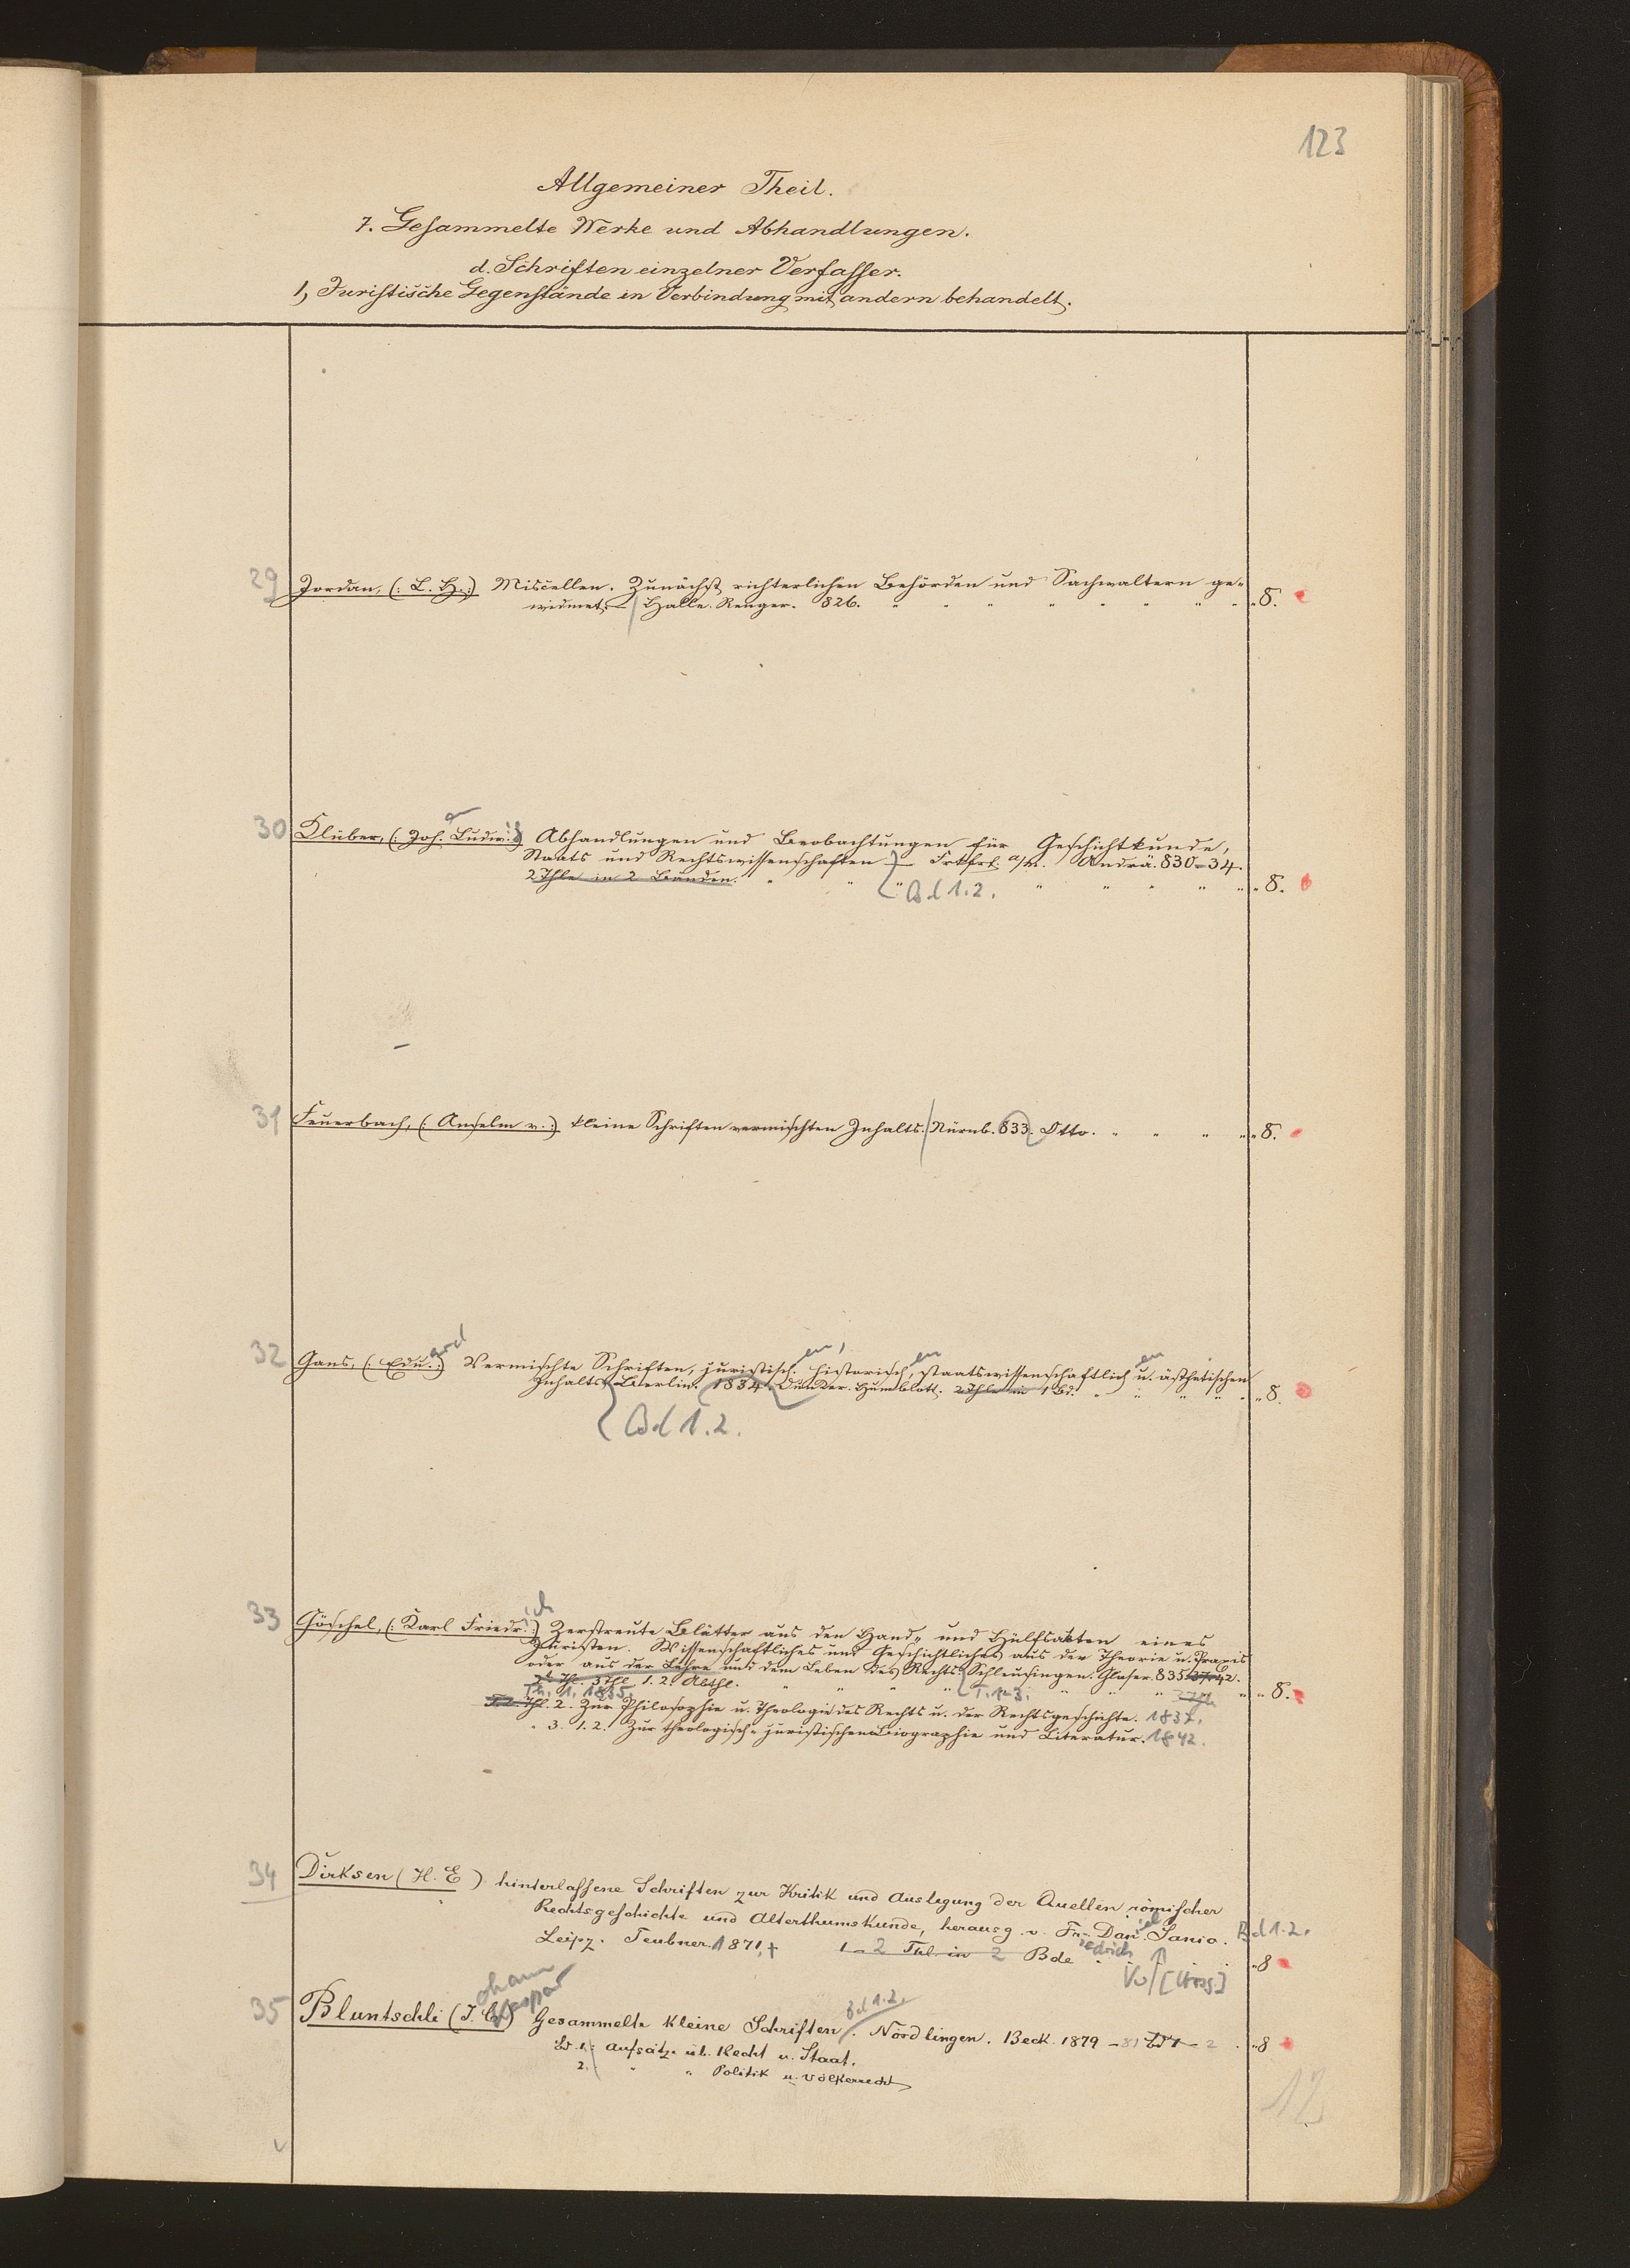 123
Allgemeiner Theil.
7. Gesammelte Werke und Abhandlungen.
d. Schriften einzelner Verfasser.
1, Juristische Gegenstände in Verbindung mit andern behandelt.
29 Jordan, (: L. H. :) Miscellen. Zunächst richterlichen Behörden und Sachwaltern ge-
widmet. Halle. Renger. 826. " " " " " " " " 8.
30 Klüber, (: Joh. Ludw. :) Abhandlungen und Beobachtungen für Geschichtkunde,
Staats und Rechtswissenschaften Frkfrt. a/M. Andrä. 830-34.
2 Thle in 2 Bänden. " " " " " " " " 8.
Bd 1.2.
31 Feuerbach, (: Anselm v. :) kleine Schriften vermischten Inhalts. Nürnb. 833. Otto. " " " " 8.
32 Gans, (: Edu.ard :) Vermischte Schriften, juristisch.en, historisch,en staatswissenschaftlichen u. ästhetischen
Inhalts. Berlin. 1834. Dunker. Humblott. 2 Thle in 1 Bd. " " " " " 8.
Bd 1.2.
33 Göschel, (: Karl Friedr.ich :) Zerstreute Blätter aus den Hand- und Hülfsakten eines
Juristen. Wissenschaftliches und Geschichtliches aus der Theorie u. Praxis
oder aus der Lehre und dem Leben des Rechts. Schleusingen. Glaser. 835 37. 42.
3 Thle 1. 2. Abthl. " " " " T. 1-3. " " " 8.
Th. 1. 1835.
Thl. 2. Zur Philosophie u. Theologie des Rechts u. der Rechtsgeschichte. 1837.
" 3. 1. 2. Zur theologisch-juristischen Biographie und Literatur. 1842.
34 Dirksen (H. E) hinterlassene Schriften zur Kritik und Auslegung der Quellen römischer
Rechtsgeschichte und Alterthumskunde, herausg. v. Fr. Daniel Sanio. Bd 1.2.
Leipz. Teubner. 1871, 1-2 Thl. in 2 Bde " 8
iedrich
35 Bluntschli (J. C.) Gesammelte kleine Schriften. Bd 1.2. Nördlingen. Beck. 1879 -81 Bd 1-2 . " 8
ohann Kaspar
Bd. 1. : Aufsätze üb. Recht u. Staat.
2. " " Politik u. Völkerrecht
12